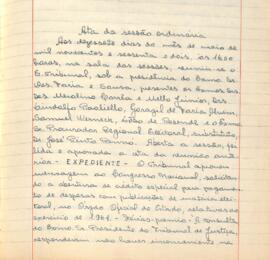 Ata da sessão ordinária
Aos dezessete dias do mês de maio de
mil novecentos e sessenta e dois, às 16,30
horas, na sala das sessões, reuniu-se o
E. Tribunal, sob a presidência do Exmo. Sr.
Des. Faria e Sousa, presentes os Exmos. Srs.
Des. Merolino Corrêa e Mello Júnior, Drs.
Lindolfo Paoliello, Gorazil de Faria Alvim,
Samuel Werneck, Costa de Resende e o Exmo.
Sr. Procurador Regional Eleitoral, substituto,
Dr. José Pinto Renno. Aberta a sessão, foi
lida e aprovada a ata da reunião ante-
rior. - EXPEDIENTE - O Tribunal aprovou
mensagem ao Congresso Nacional, solicitan-
do a abertura de crédito especial para pagamen-
to de despesas com publicações de matéria elei-
toral, no Órgão Oficial do Estado, relativas ao
exercício de 1961. - Férias-prêmio - À consulta
do Exmo. Sr. Presidente do Tribunal de Justiça,
responderam não haver inconveniente na